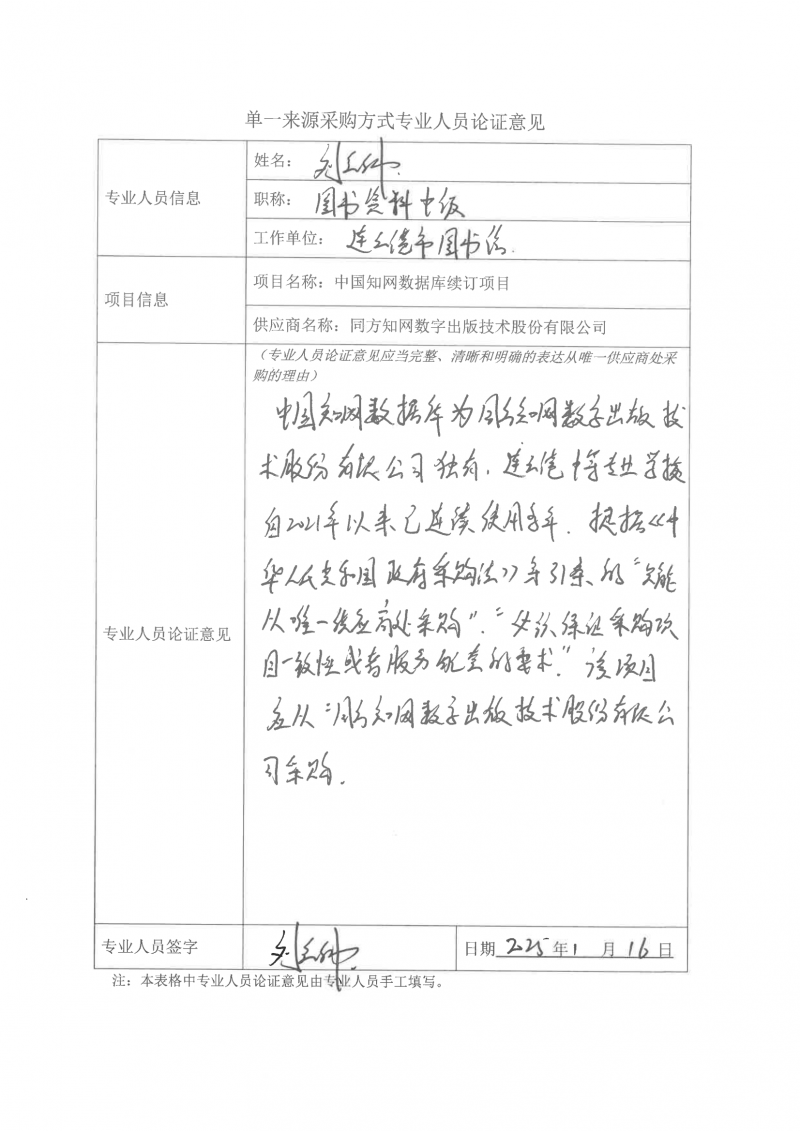 单一来源采购方式专业人员论证意见
专业人员信息
姓名：刘
职称：图书资料中级
工作单位：连云港市图书馆.
项目信息
项目名称：中国知网数据库续订项目
供应商名称：同方知网数字出版技术股份有限公司
专业人员论证意见
（专业人员论证意见应当完整、清晰和明确的表达从唯一供应商处采
购的理由）
中国知网数据库为同方知网数字出版技
术股份有限公司独有，连云港中等专业学校
自2021年以来已连续使用多年．根据《中
华人民共和国政府采购法》第31条、的“只能
从唯一供应商处采购”、“必须保证采购项
目一致性或者服务配套的要求.”该项目
应从“同方知网数字出版技术股份有限公
司采购．
专业人员签字
刘
日期 2025 年 1 月 16 日
注：本表格中专业人员论证意见由专业人员手工填写。